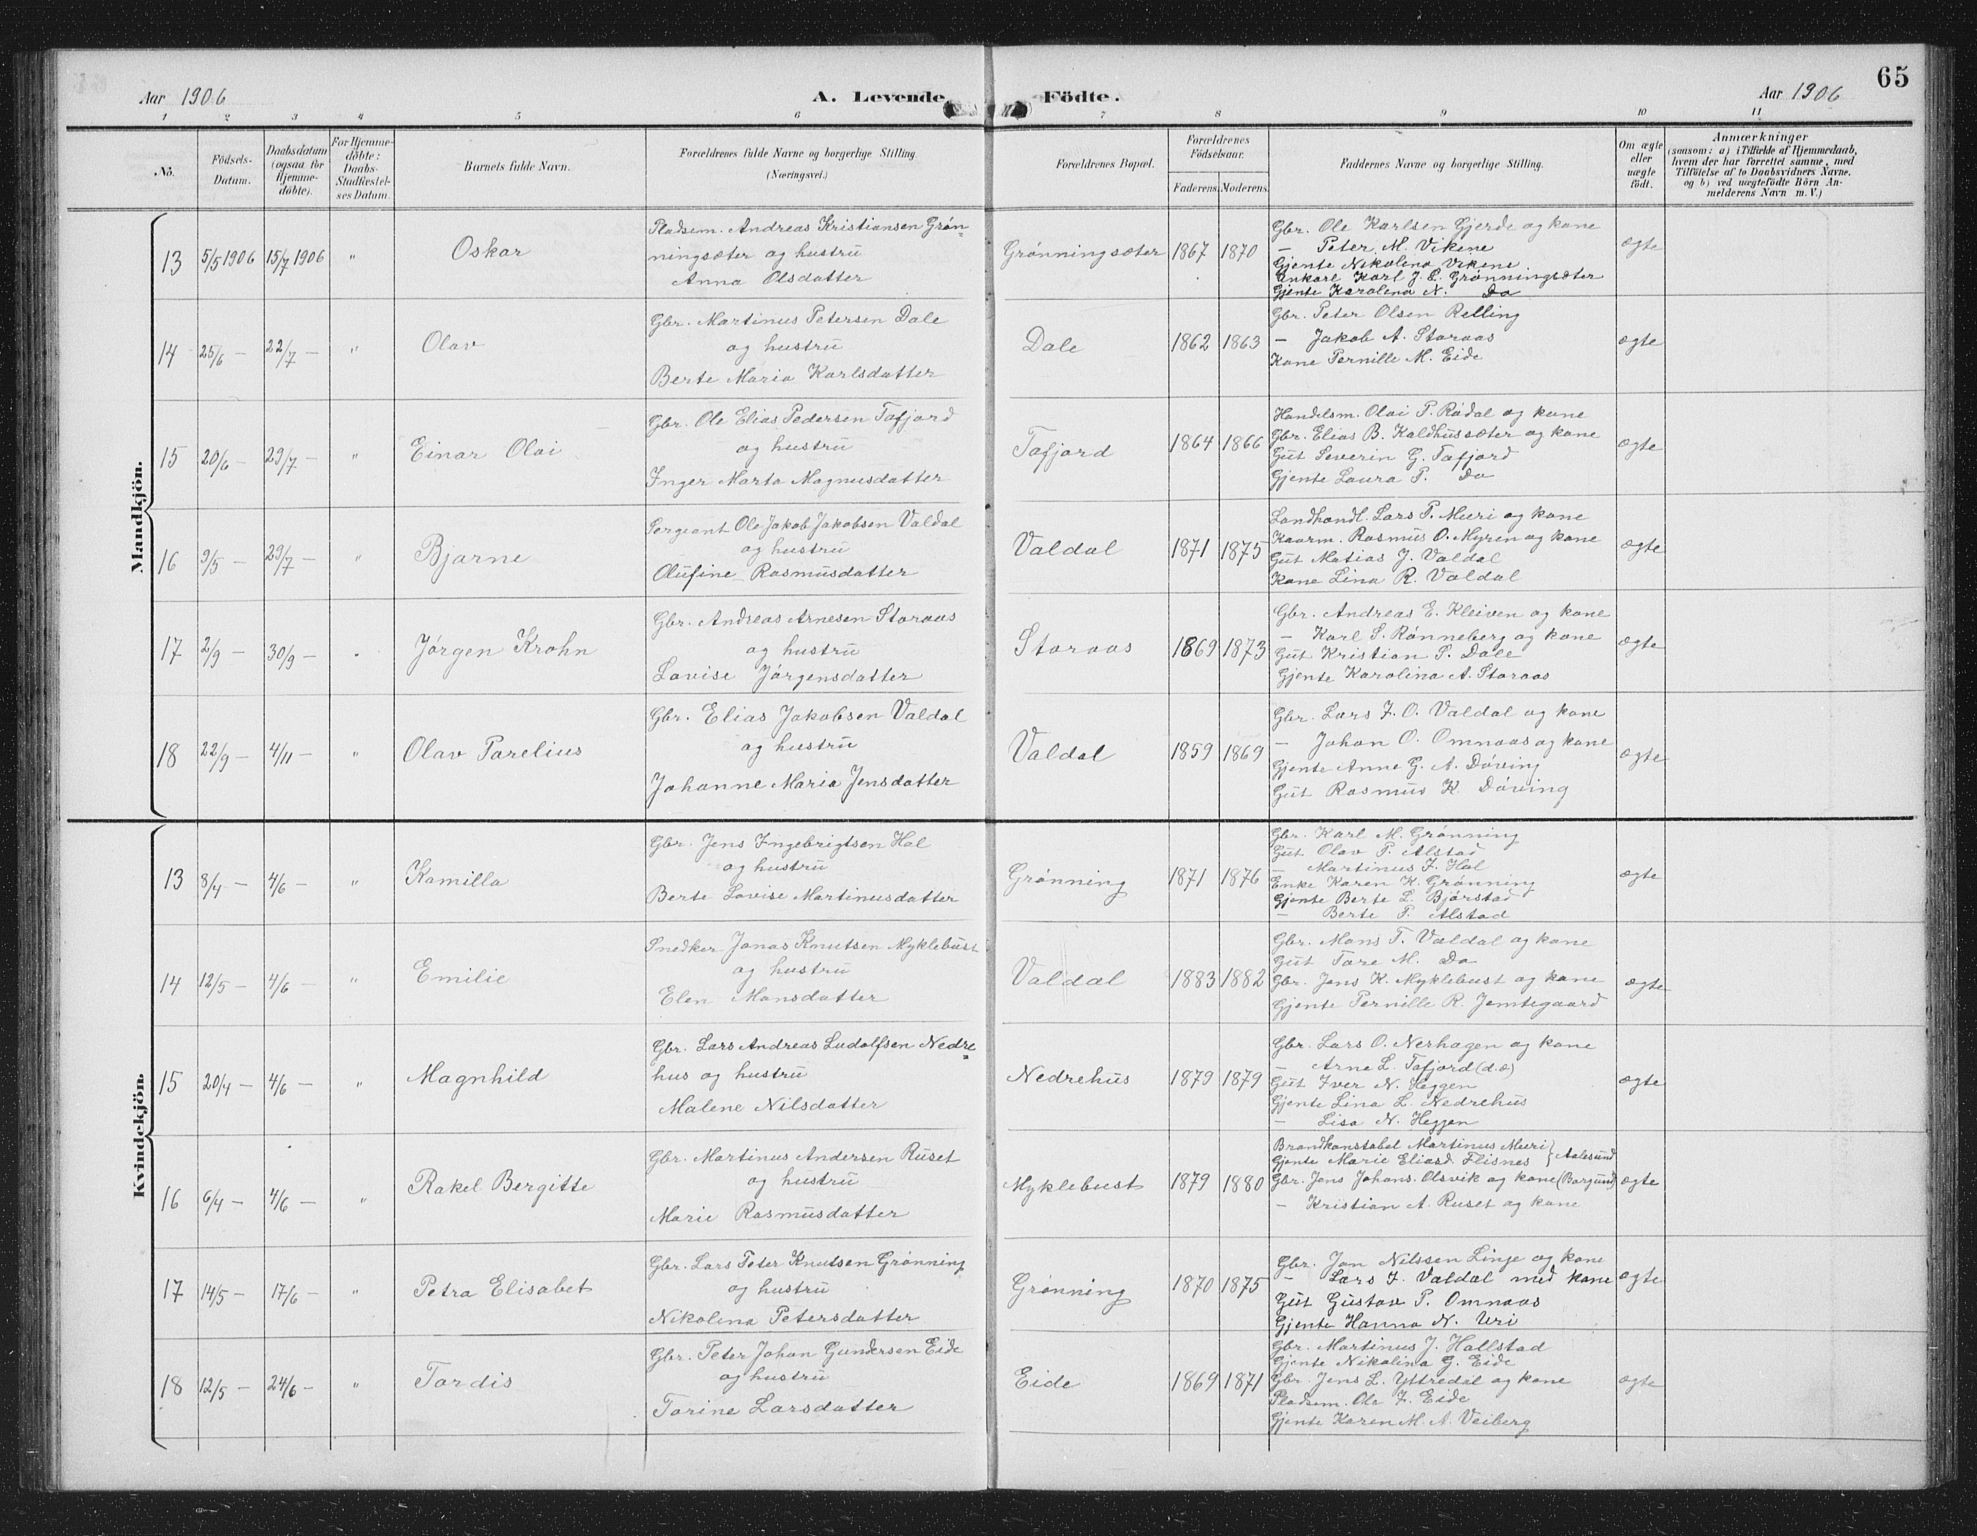 65
Aar 1906 A. Levende Födte. Aar 1906
1 2 3 4 5 6 7 8 9 10 11
No.
Födsels-
Datum.
Daabsdatum
(ogsaa for
Hjemme-
döbte).
For Hjemme-
döbte:
Daabs-
Stadfæstel-
ses Datum.
Barnets fulde Navn.
Forældrenes fulde Navne og borgerlige Stilling.
(Næringsvei.)
Forældrenes Bopæl.
Forældrenes
Födselsaar.
Faderens. Moderens.
Faddernes Navne og borgerlige Stilling.
Om ægte
eller
uægte
födt.
Anmærkninger
(saasom: a) i Tilfælde af Hjemmedaab,
hvem der har forrettet samme, med
Tilföielse af to Daabsvidners Navne,
og b) ved uægtefödte Börn An-
melderens Navn m. V.)
Mandkjön.
13 5/5 1906 15/7 1906 " Oskar
Pladsem. Andreas Kristiansen Grøn=
ningsæter og hustru
Anna Olsdatter
Grønningsæter 1867 1870
Gbr. Ole Karlsen Gjerde og kone
— Peter M. Vikene
Gjente Nikolina Vikene
Unkarl Karl J. E. Grønningsæter
Gjente Karolena N. Do
ægte
14 25/6 — 22/7 — " Olav
Gbr. Martinus Petersen Dale
og hustru
Berte Maria Karlsdatter
Dale 1862 1863
Gbr. Peter Olsen Relling
— Jakob A. Storaas
Kone Pernille M. Eide
ægte
15 20/6 — 29/7 — " Einar Olai
Gbr. Ole Elias Pedersen Tafjord
og hustru
Inger Marta Magnusdatter
Tafjord 1864 1866
Handelsm. Olai P. Rødal og kone
Gbr. Elias B. Kaldhussæter og kone
Gut Severin G. Tafjord
Gjente Laura P. Do
ægte
16 9/5 — 29/7 — " Bjarne
Sergeant Ole Jakob Jakobsen Valdal
og hustru
Olufine Rasmusdatter
Valdal 1871 1875
Landhandl. Lars P. Muri og kone
Kaarm. Rasmus O. Myren og kone
Gut Matias J. Valdal
Kone Lina R. Valdal
ægte
17 2/9 — 30/9 — " Jørgen Krohn
Gbr. Andreas Arnesen Storaas
og hustru
Lovise Jørgensdatter
Storaas 1869 1873
Gbr. Andreas E. Kleiven og kone
— Karl S. Rønneberg og kone
Gut Kristian P. Dale
Gjente Karolina A. Storaas
ægte
18 22/9 — 4/11 — " Olav Parelius
Gbr. Elias Jakobsen Valdal
og hustru
Johanne Maria Jensdatter
Valdal 1859 1869
Gbr. Lars J. O. Valdal og kone
— Johan O. Omnaas og kone
Gjente Anne G. A. Døving
Gut Rasmus K. Døving
ægte
Kvindekjön.
13 8/4 — 4/6 — " Kamilla
Gbr. Jens Ingebrigtsen Hol
og hustru
Berte Lovise Martinusdatter
Grønning 1871 1876
Gbr. Karl M. Grønning
Gut Olav P. Alstad
— Martinus J. Hol
Enke Karen K. Grønning
Gjente Berte L. Bjørstad
— Berte P. Alstad
ægte
14 12/5 — 4/6 — " Emilie
Snedker Jonas Knutsen Myklebust
og hustru
Elen Monsdatter
Valdal 1883 1882
Gbr. Mons T. Valdal og kone
Gut Tore M. Do
Gbr. Jens K. Myklebust og kone
Gjente Pernille R. Jemtegaard
ægte
15 20/4 — 4/6 — " Magnhild
Gbr. Lars Andreas Ludolfsen Nedre=
hus og hustru
Malene Nilsdatter
Nedrehus 1879 1879
Gbr. Lars O. Nerhagen og kone
— Arne L. Tafjord (d.æ)
Gut Iver N. Heggen
Gjente Lina L. Nedrehus
— Lisa N. Heggen
ægte
16 6/4 — 4/6 — " Rakel Bergitte
Gbr. Martinus Andersen Ruset
og hustru
Marie Rasmusdatter
Myklebust 1879 1880
Brandkonstabel Martinus Muri } Aalesund
Gjente Marie Eliasd. Flisnes
Gbr. Jens Johans. Olsvik og kone (Borgund)
— Kristian A. Ruset og kone
ægte
17 14/5 — 17/6 — " Petra Elisabet
Gbr. Lars Peter Knutsen Grønning
og hustru
Nikolina Petersdatter
Grønning 1870 1875
Gbr. Jon Nilssen Linge og kone
— Lars J. Valdal med kone
Gut Gustav P. Omnaas
Gjente Hanna N. Uri
ægte
18 12/5 — 24/6 — " Tordis
Gbr. Peter Johan Gundersen Eide
og hustru
Torine Larsdatter
Eide 1869 1871
Gbr. Martinus J. Hallstad
Gjente Nikolina G. Eide
Gbr. Jens L. Yttredal og kone
Pladsem. Ole J. Eide
Gjente Karen M. A. Veiberg
ægte